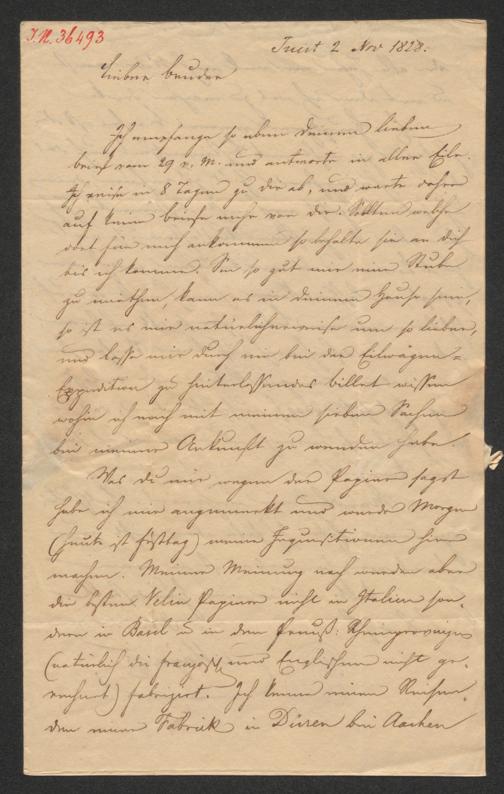 I.N. 36493
Triest 2 Nov 1828.
Lieber Bruder
Ich empfange so eben deinen lieben
Brief vom 29 v. M. und antworte in aller Eile.
Ich reise in 8 Tagen zu dir ab, und warte daher
auf keine Briefe mehr von dir. Sollten welche
dort für mich ankommen so behalte sie an dich
bis ich komme. Sey so gut mir eine Stube
zu miethen, kann es in deinem Hause seyn,
so ist es mir natürlicherweise um so lieber,
und lasse mir durch ein bei der Eilwägen-
Expedition zu hinterlassendes Billet wissen
wohin ich mich mit meinen sieben Sachen
bei meiner Ankunft zu wenden habe.
Was du mir wegen der Papiere sagst
habe ich mir angemerkt und werde Morgen
(heute ist Festtag) meine Inquisitionen hier
machen. Meiner Meinung nach werden aber
die besten Velin Papiere nicht in Italien son-
dern in Basel u in den Preuß: Rheinprovinzen
(natürlich die französisch und Englischen nicht ge-
rechnet) fabrizirt. Ich kenne einen
dem eine Fabrick in Düren bei Aachen